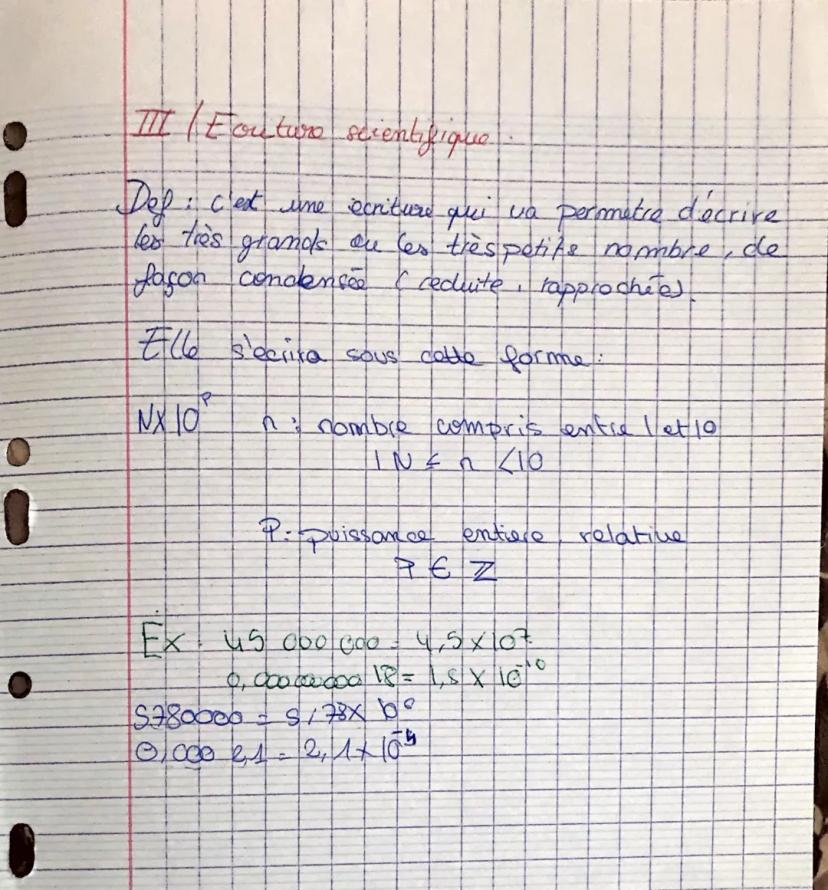 III / Ecriture scientifique.
Def : c'est une ecriture qui va permetre d'écrire
les très grands ou les très petits nombre, de
façon condensée (reduite, rapprochée).
Elle s'ecrira sous cette forme :
N x 10^P n : nombre compris entre 1 et 10
1 N ≤ n < 10
P : puissance entiere, relative
P ∈ ℤ
Ex : 45 000 000 = 4,5 x 10^7
18 = 1,8 x 10^-10
5780000 = 5,78 x
0,000 2,1 = 2,1 x